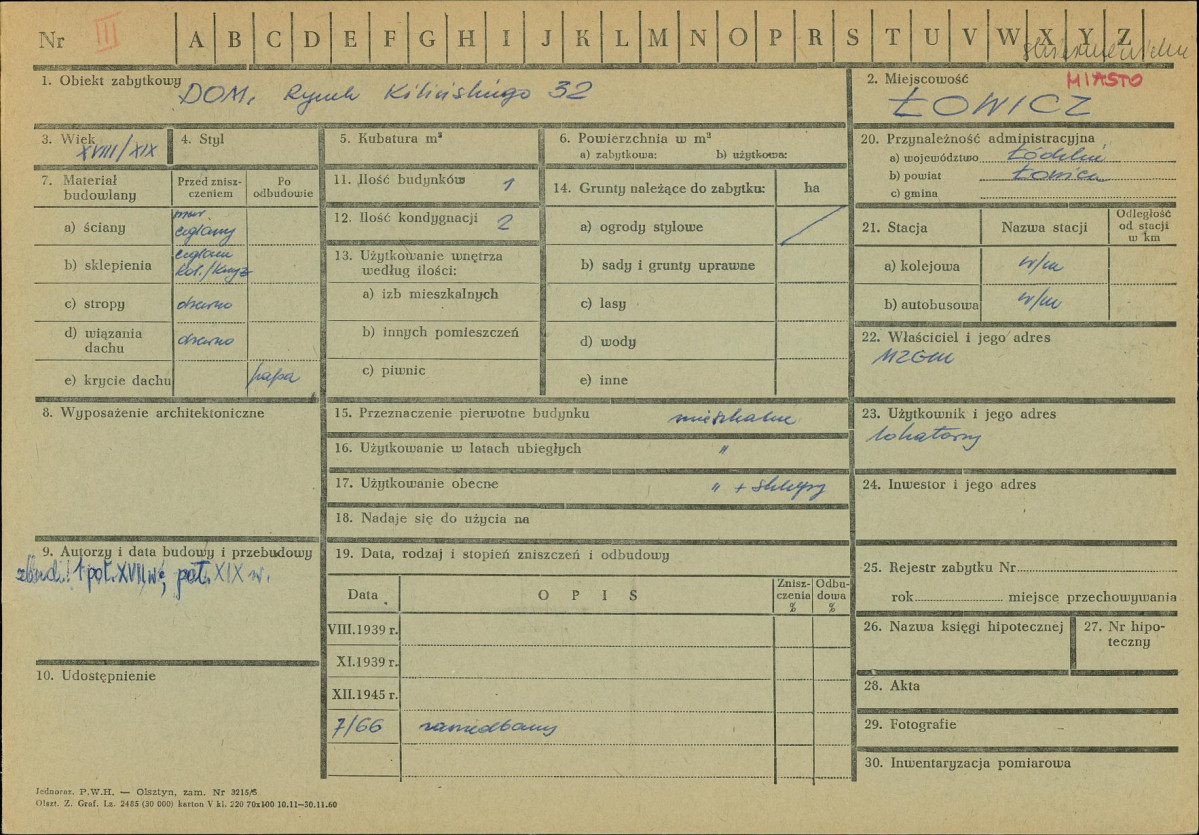 Nr III A B C D E F G H I J K L M N O P R S T U V W X Y Z
1. Obiekt zabytkowy DOM, Rynek Kilińskiego 32
2. Miejscowość MIASTO
ŁOWICZ
3. Wiek XVIII/XIX
4. Styl
5. Kubatura m³
6. Powierzchnia w m²
a) zabytkowa: b) użytkowa:
20. Przynależność administracyjna
a) województwo Łódzkie
b) powiat Łowicz
c) gmina
7. Materiał budowlany
Przed zniszczeniem
Po odbudowie
a) ściany mur. ceglany
b) sklepienia
c) stropy drewno
d) wiązania dachu drewno
e) krycie dachu papa
11. Ilość budynków 1
12. Ilość kondygnacji 2
13. Użytkowanie wnętrza według ilości:
a) izb mieszkalnych
b) innych pomieszczeń
c) piwnic
14. Grunty należące do zabytku: ha
a) ogrody stylowe /
b) sady i grunty uprawne
c) lasy
d) wody
e) inne
21. Stacja Nazwa stacji Odległość od stacji w km
a) kolejowa w/m
b) autobusowa w/m
22. Właściciel i jego adres
MZBM
8. Wyposażenie architektoniczne
15. Przeznaczenie pierwotne budynku mieszkalne
16. Użytkowanie w latach ubiegłych "
17. Użytkowanie obecne " + sklepy
18. Nadaje się do użycia na
23. Użytkownik i jego adres
lokatorzy
24. Inwestor i jego adres
9. Autorzy i data budowy i przebudowy
zbud. 1 poł. XVII w., poł. XIX w.
19. Data, rodzaj i stopień zniszczeń i odbudowy
Data OPIS Zniszczenia % Odbudowa %
VIII.1939 r.
XI.1939 r.
XII.1945 r.
7/66 zaniedbany
25. Rejestr zabytku Nr
rok miejsce przechowywania
26. Nazwa księgi hipotecznej
27. Nr hipoteczny
10. Udostępnienie
28. Akta
29. Fotografie
30. Inwentaryzacja pomiarowa
Jednoraz. P.W.H. — Olsztyn, zam. Nr 3215/S
Olszt. Z. Graf. Lz. 2485 (30 000) karton V kl. 220 70x100 10.11—30.11.60